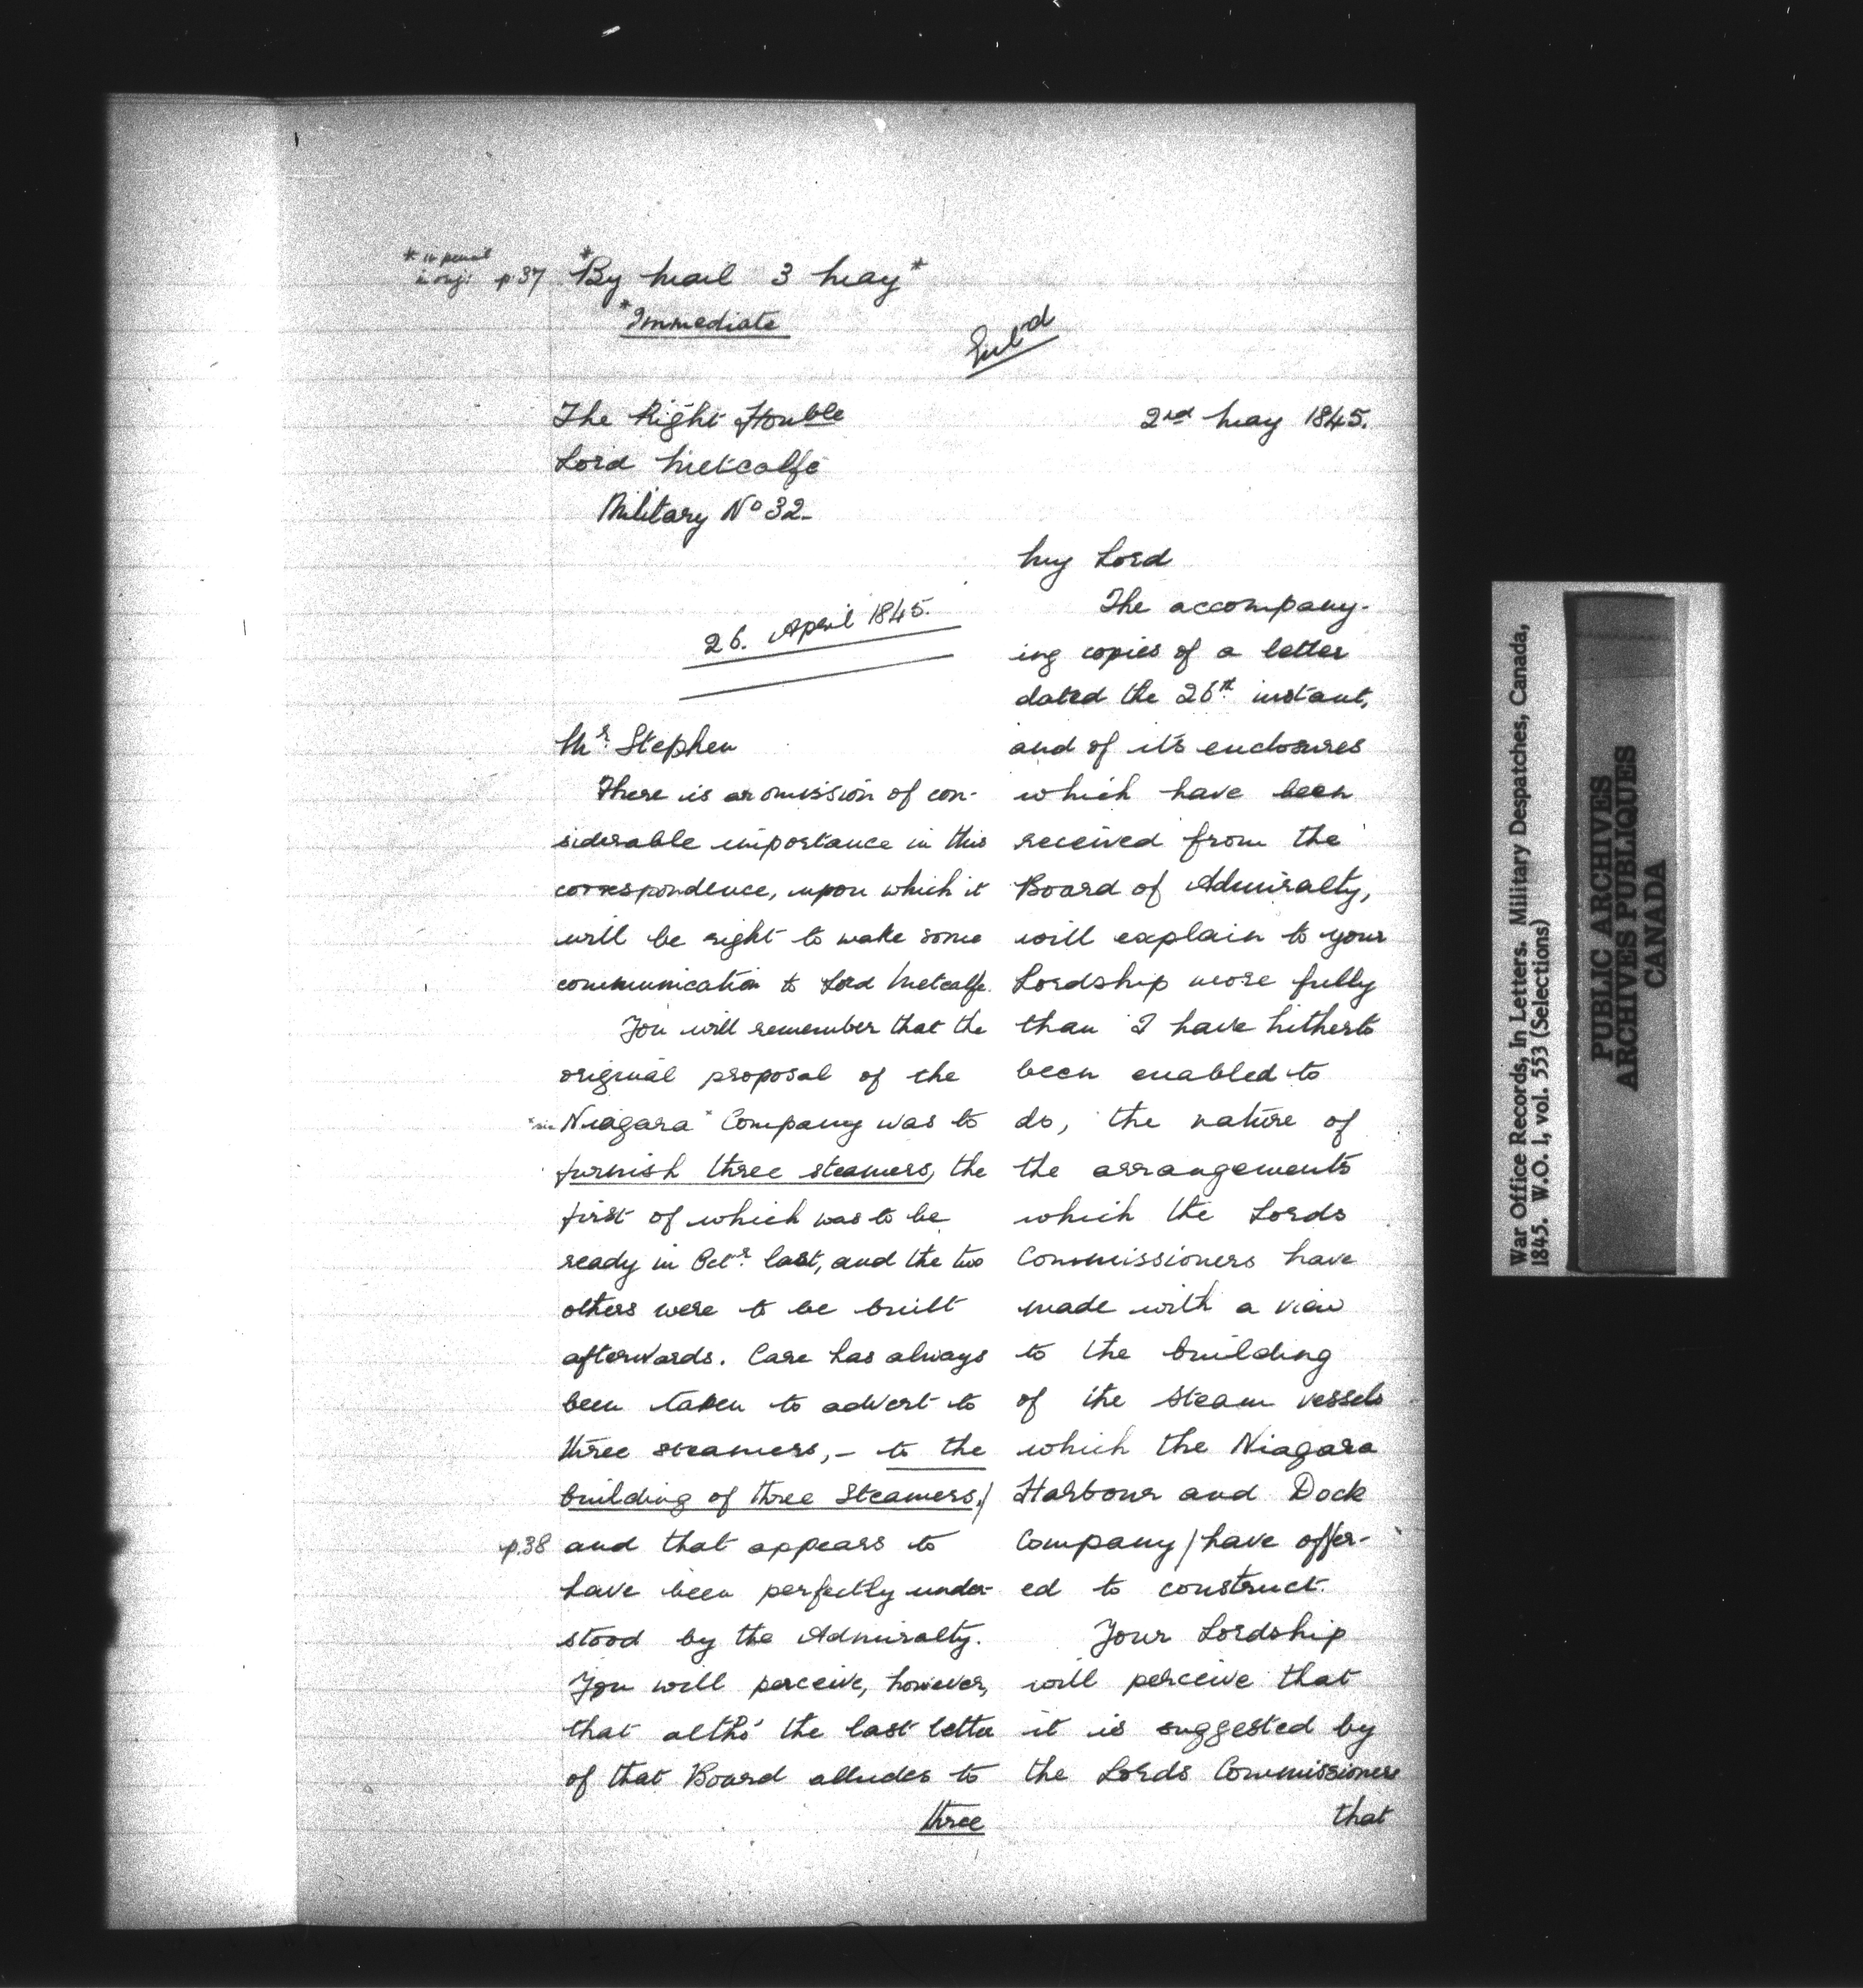 * in pencil
in orig: p.37 *By Mail 3 May*
*Immediate
Ent^d
The Right Honble
Lord Metcalfe
Military No 32-
2nd May 1845.
26. April 1845.
Mr. Stephen
There is an omission of con-
siderable importance in this
correspondence, upon which it
will be right to make some
communication to Lord Metcalfe.
You will remember that the
original proposal of the
Niagara Company was to
furnish three steamers, the
first of which was to be
ready in Octr. last, and the two
others were to be built
afterwards. Care has always
been taken to advert to
three steamers, - to the
building of three Steamers,/
p.38 and that appears to
have been perfectly under-
stood by the Admiralty.
You will perceive, however,
that altho' the last letter
of that Board alludes to
three
My Lord
The accompany-
ing copies of a letter
dated the 26th. instant,
and of its enclosures
which have been
received from the
Board of Admiralty,
will explain to your
Lordship more fully
than I have hitherto
been enabled to
do, the nature of
the arrangements
which the Lords
Commissioners have
made with a view
to the building
of the Steam vessels
which the Niagara
Harbour and Dock
Company / have offer-
ed to construct.
Your Lordship
will perceive that
it is suggested by
the Lords Commissioners
that
War Office Records, In Letters. Military Despatches, Canada,
1845. W.O. 1, vol. 553 (Selections)
PUBLIC ARCHIVES
ARCHIVES PUBLIQUES
CANADA